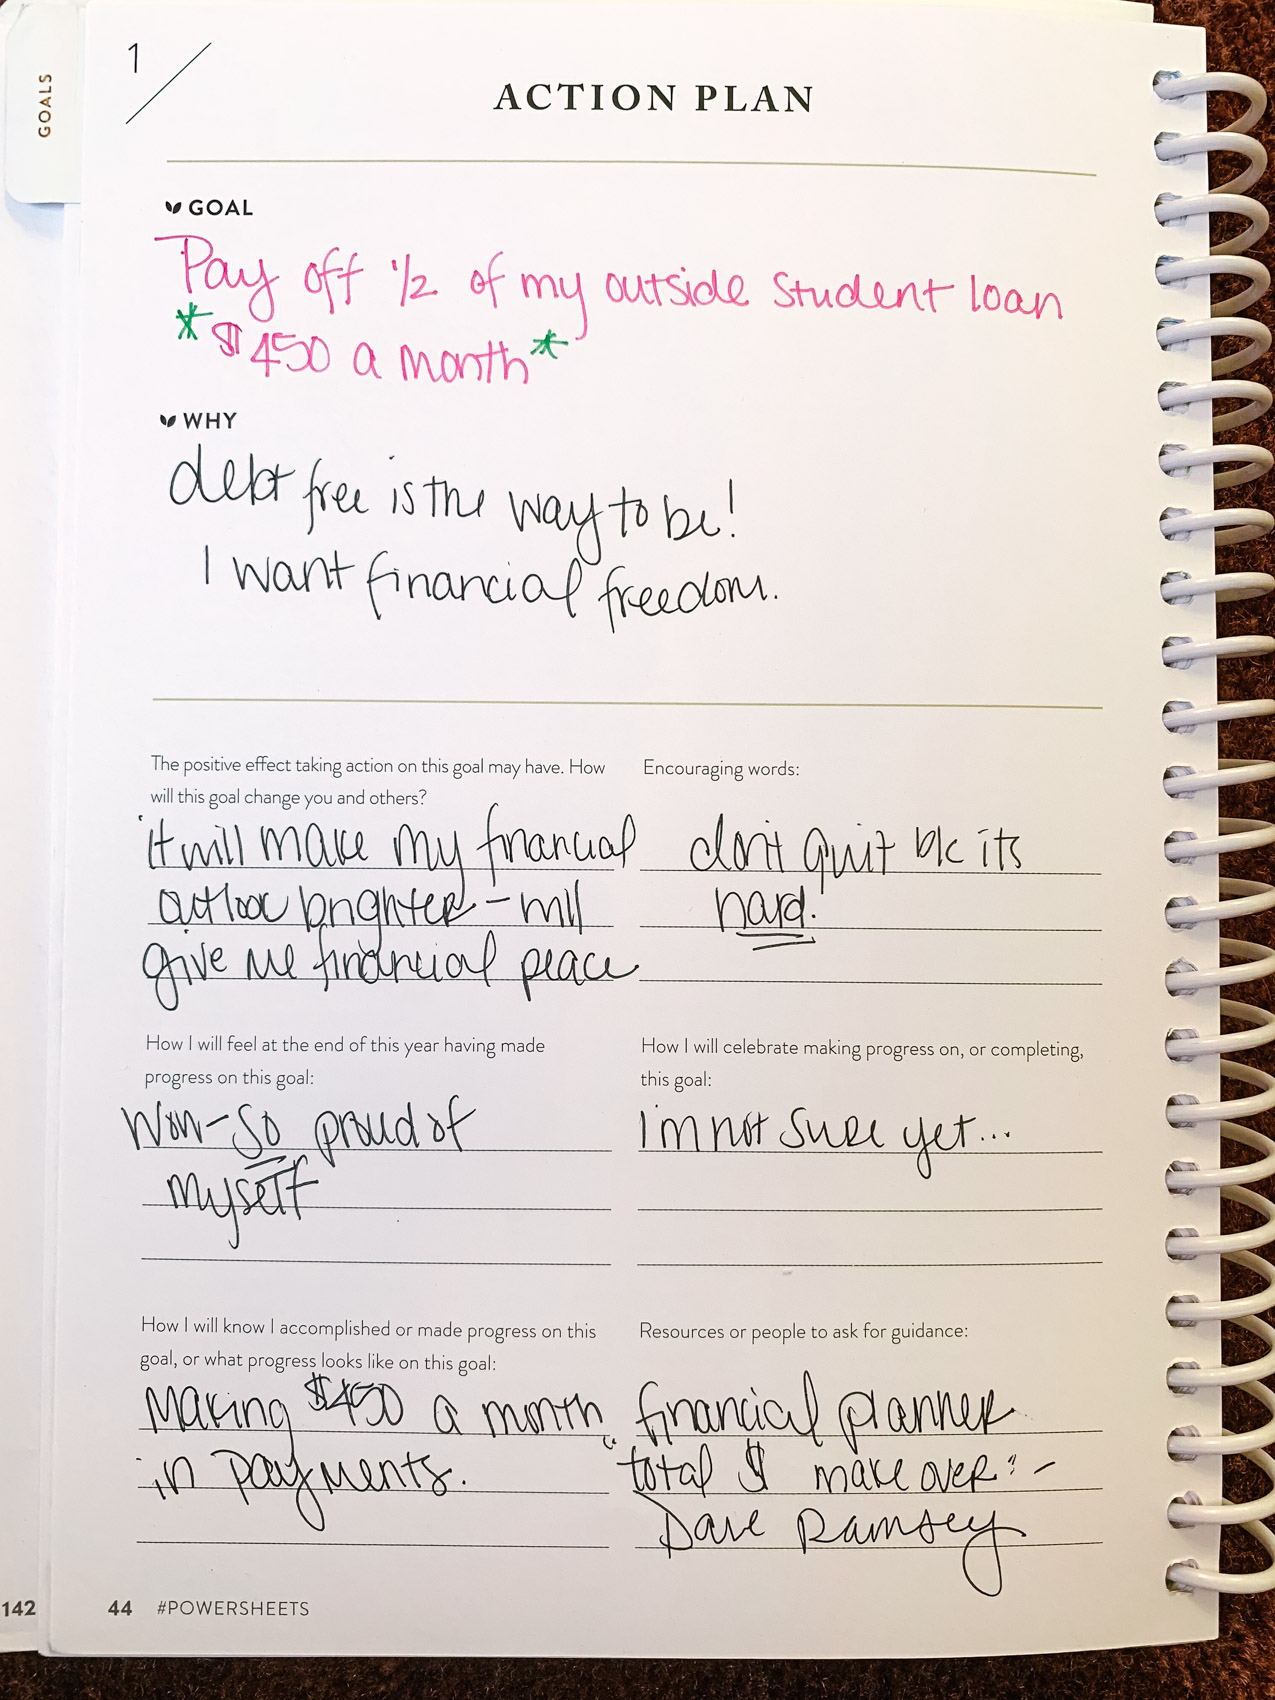 GOALS
1
ACTION PLAN
GOAL
Pay off 1/2 of my outside student loan
*$450 a month*
WHY
debt free is the way to be!
I want financial freedom.
The positive effect taking action on this goal may have. How
will this goal change you and others?
it will make my financial
outlook brighter - will
give me financial peace
Encouraging words:
don't quit b/c its
hard.
How I will feel at the end of this year having made
progress on this goal:
Wow - so proud of
myself
How I will celebrate making progress on, or completing,
this goal:
I'm not sure yet...
How I will know I accomplished or made progress on this
goal, or what progress looks like on this goal:
Making $450 a month
in payments.
Resources or people to ask for guidance:
financial planner
"total $ makeover" -
Dave Ramsey
142
44 #POWERSHEETS